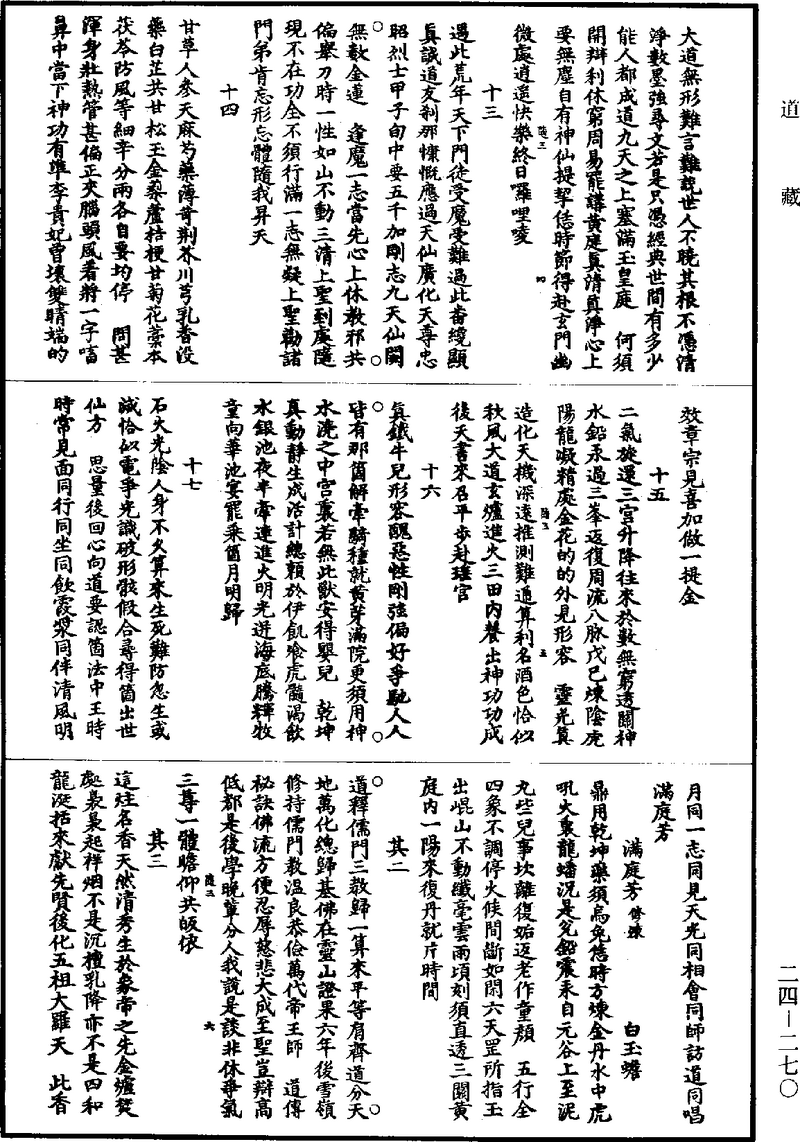 道藏
大道無形難言難說世人不曉其根不憑清
淨數墨強尋文若是只憑經典世間有多少
能人都成道九天之上塞滿玉皇庭　何須
開辯利休窮周易罷講黃庭真清真淨心上
要無塵自有神仙提挈恁時節得赴玄門幽
微處逍遙快樂終日囉哩唛
十三
遇此荒年天下門徒受魔受難過此番纔顯
真誠道友剎那慷慨應過天仙廣化天尊忠
昭烈士甲子旬中要五千加剛志九天仙闕
無數金蓮　逢魔一志當先心上休教邪共
偏舉刀時一性如山不動三清上聖到處隨
現不在功全不須行滿一志無疑上聖勸諸
門弟肯忘形忘體隨我昇天
十四
甘草人參天麻芍藥薄荷荆芥川芎乳香没
藥白芷共甘松玉金藜蘆桔梗甘菊花藁本
茯苓防風等細辛分兩各自要均停　問甚
渾身壯熱管甚偏正夾腦頭風着將一字㗜
鼻中當下神功有準李貴妃曾壞雙睛端的
效章宗見喜加做一提金
十五
二氣旋還三宮升降往來於數無窮透關神
水鉛汞過三峯返復周流八脉戊己煉陰虎
陽龍凝精處金花的的外見形容　靈光真
造化天機深遠推測難通算利名酒色恰似
秋風大道玄爐進火三田内養出神功功成
後天書來召平步赴瑤宮
十六
貧鐵牛兒形容醜惡性剛強偏好爭馳人人
皆有那箇解牽騎種就黃芽滿院更須用神
水澆之中宮裏若無此獸安得嬰兒　乾坤
真動靜生成活計總賴於伊飢飡虎髓渴飲
水銀池夜半牽連進火明光迸海底騰輝牧
童向華池宴罷乘箇月明歸
十七
石火光陰人身不久算來生死難防忽生或
滅恰似電爭光識破形骸假合尋得箇出世
仙方　思量後回心向道要認箇法中王時
時常見面同行同坐同飲霞漿同伴清風明
月同一志同見天光同相會同師訪道同唱
滿庭芳
滿庭芳　修煉　白玉蟾
鼎用乾坤藥須烏兔恁時方煉金丹水中虎
吼火裏龍蟠況是兌鉛震汞自元谷上至泥
九些兒事坎離復姤返老作童顏　五行全
四象不調停火候間斷如閑六天罡所指玉
出崐山不動纖毫雲雨頃刻須直透三關黃
庭内一陽來復丹就片時間
其二
道釋儒門三教歸一算來平等肩齊道分天
地萬化總歸基佛在靈山證果六年後雪嶺
修持儒門教溫良恭儉萬代帝王師　道傳
秘訣佛流方便忍辱慈悲大成至聖豈辯高
低都是後學晚輩分人我說是談非休爭氣
三尊一體瞻仰共皈依
其三
這炷名香天然清秀生於象帝之先金爐焚
處裊裊起祥烟不是沉檀乳降亦不是四和
龍涎拈來獻先賢後化五祖大羅天　此香
二四－二七〇